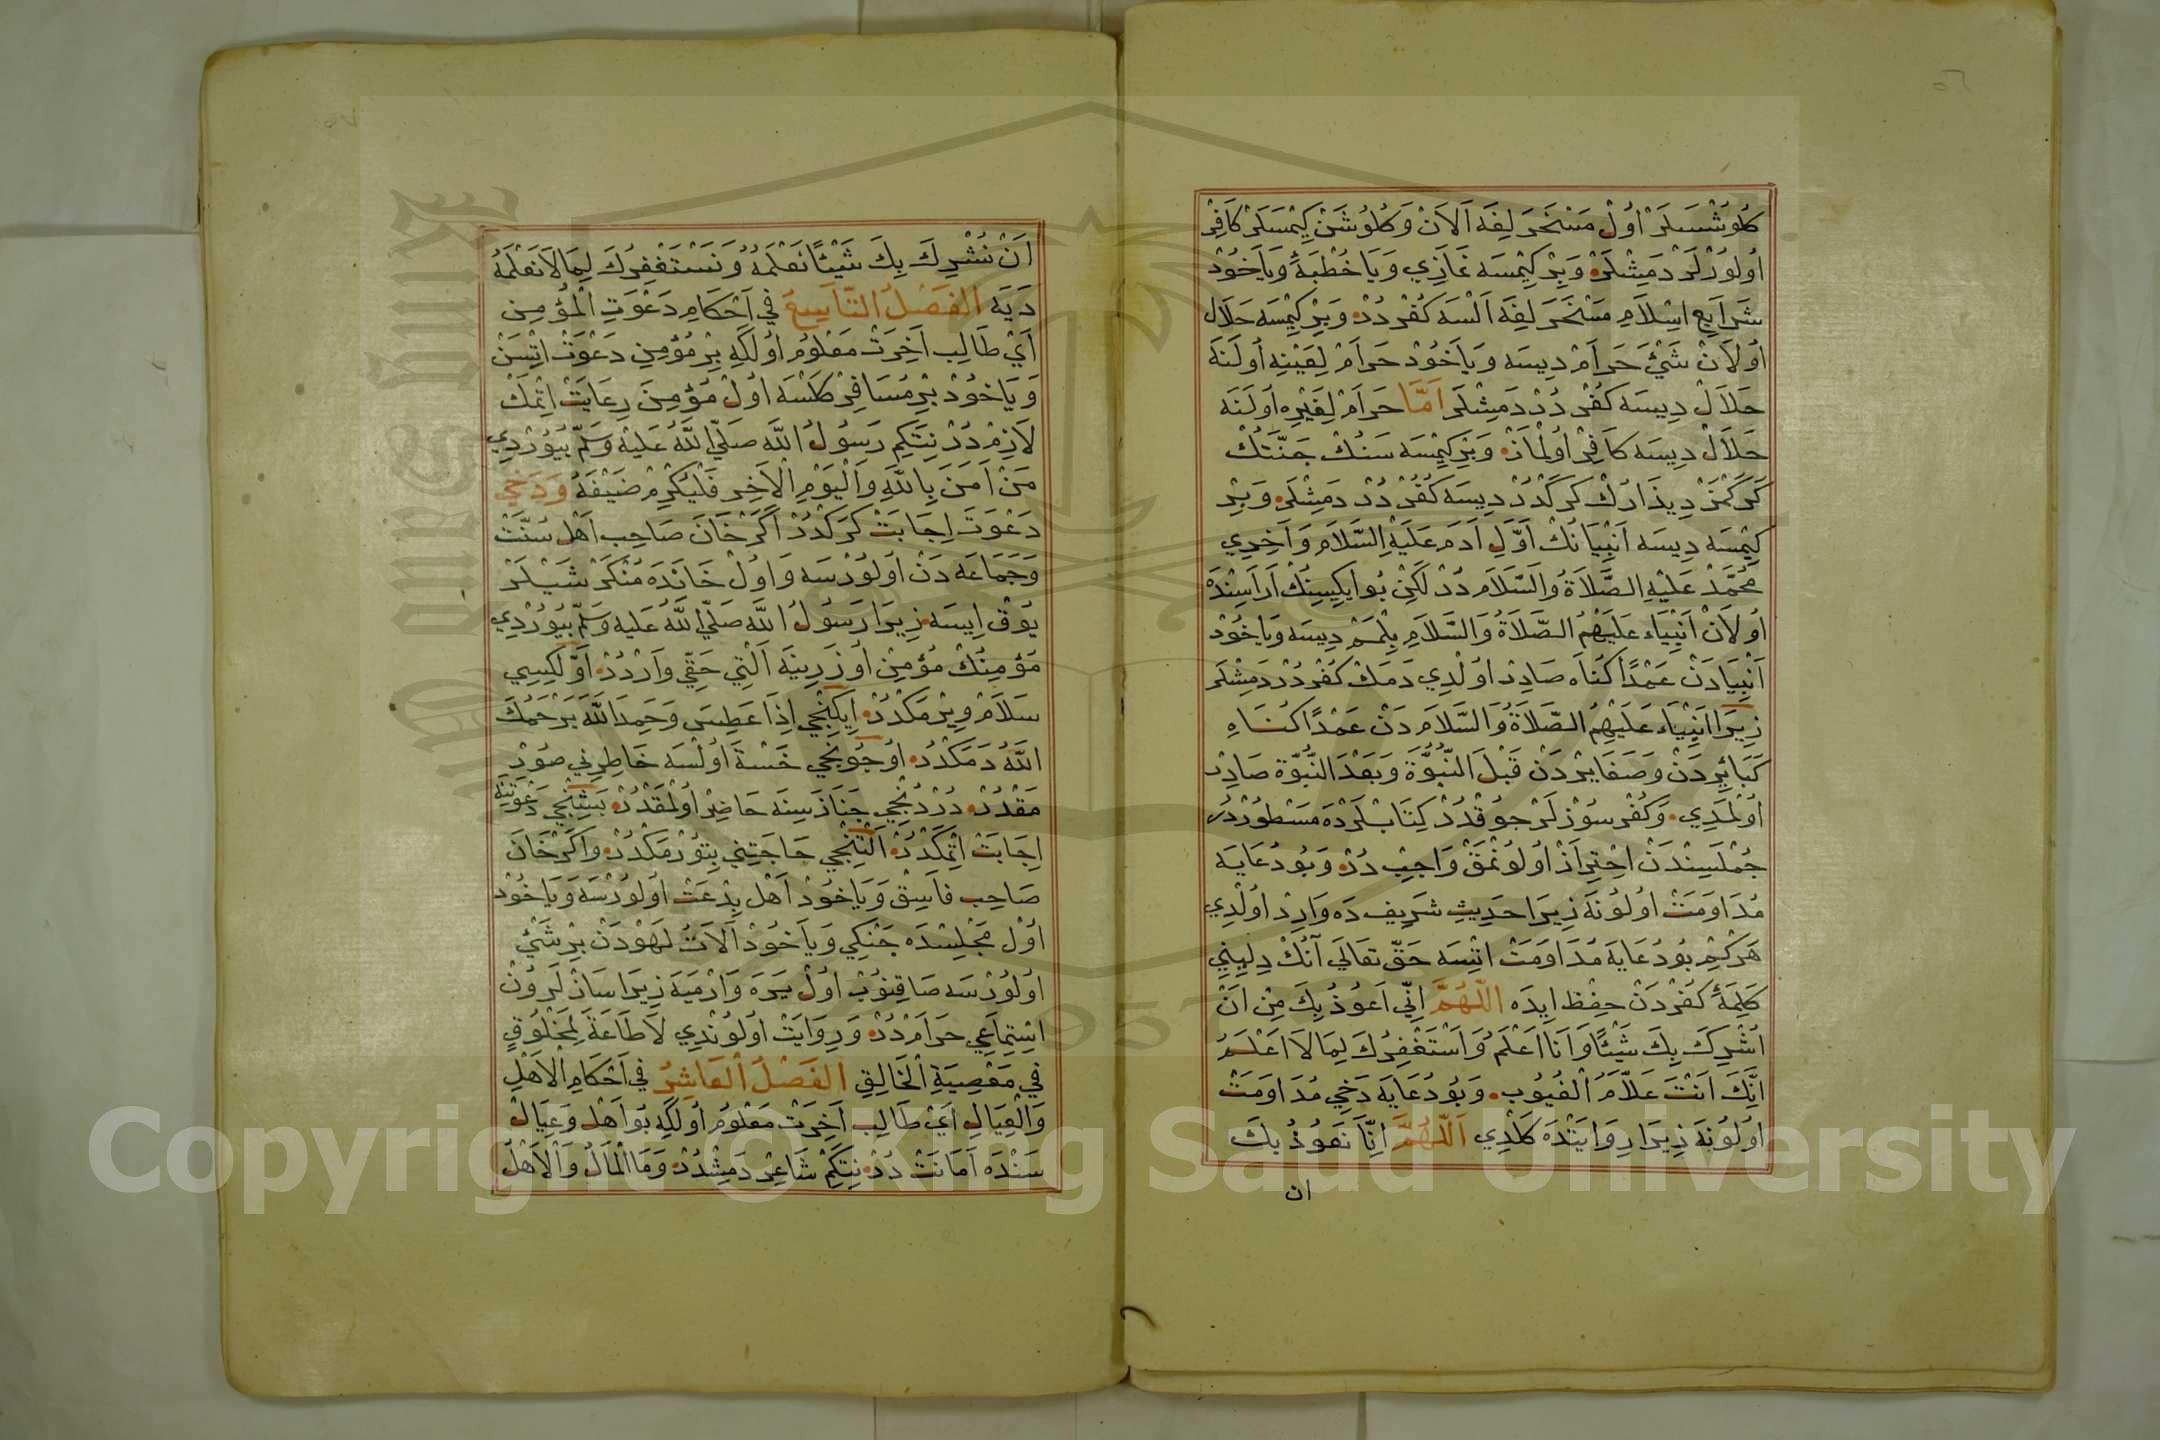 كُلُوشْسَلَرْ اُولْ مَسْخَرَ لِغَه اَلاَنْ وَكُلُوشَنْ كِيْمْسَلَرْ كَافِرْ
اُولُورْلَرْ دَمِشْلَرْ وَبِرْ كِيْمْسَه غَازِي وَيَا خُطْبَةَ وَيَاخُوْدْ
شَرَايِعِ اِسْلاَمِ مَسْخَرَ لِغَه اَلْسَه كُفْرْ دُرْ وَبِرْ كِيْمْسَه حَلاَل
اُولاَنْ شَيْءَ حَرَامْ دِيسَه وَيَاخُودْ حَرَامْ لِعَيْنِه اُولَنَه
حَلاَلْ دِيسَه كُفْرْ دُرْ دَمِشْلَرْ اَمَّا حَرَامْ لِغَيْرِه اُولَنَه
حَلاَلْ دِيسَه كَافِرْ اُولْمَازْ وَبِرْ كِيْمْسَه سَنُكْ جَنَّتُكْ
كَرَكْمَزْ دِيذَارُكْ كَرَكْدُرْ دِيسَه كُفْرْ دُرْ دَمِشْلَرْ وَبِرْ
كِيْمْسَه دِيسَه اَنْبِيَانُكْ اَوَّلِ اَدَمْ عَلَيْهِ السَّلاَمْ وَآخِرِي
مُحَمَّدْ عَلَيْهِ الصَّلاَةُ وَالسَّلاَمْ دُرْ لَكِنْ بُو اِيكِيسِنُكْ اَرَاسِنْدَه
اُولاَنْ اَنْبِيَاء عَلَيْهِمُ الصَّلاَةُ وَالسَّلاَمِ بِلْمَمْ دِيسَه وَيَاخُوْدْ
اَنْبِيَادَنْ عَمْدًا كُنَاه صَادِرْ اُولْدِي دَمَكْ كُفْرْ دُرْ دَمِشْلَرْ
زِيرَا اَنْبِيَاء عَلَيْهِمُ الصَّلاَةُ وَالسَّلاَمْ دَنْ عَمْدًا كُنَاهِ
كَبَائِرِدَنْ وَصَغَايِرْدَنْ قَبْلَ النُّبُوَّةِ وَبَعْدَ النُّبُوَّة صَادِرْ
اُولْمَدِي وَكُفْرِ سُوزْلَرْ جُوقْدُرْ كِتَابْلَرْدَه مَسْطُورْدُرْ
جُمْلَسِنْدَنْ اِحْتِرَازْ اُولُونْمَقْ وَاجِبْ دُرْ وَبُو دُعَايَه
مُدَاوَمَتْ اُولُونَه زِيرَا حَدِيثِ شَرِيف دَه وَارِدْ اُولْدِي
هَرْ كِمْ بُو دُعَايَه مُدَاوَمَتْ اتْسَه حَقّ تَعَالَي آنُكْ دِلِنِي
كَلِمَةِ كُفْرْدَنْ حِفْظ اِيدَه اللّٰهُمَّ اِنِّي اَعُوذُ بِكَ مِنْ اَنْ
اُشْرِكَ بِكَ شَيْئًا وَاَنَا اَعْلَمُ وَاَسْتَغْفِرُكَ لِمَا لاَ اَعْلَمُ
اِنَّكَ اَنْتَ عَلاَّمُ الْغُيُوبِ وَبُو دُعَايَه دَخِي مُدَاوَمَتْ
اُولُونَه زِيرَا رِوَايَتْدَه كَلْدِي اَللّٰهُمَّ اِنَّا نَعُوذُ بِكَ
ان
اَنْ نُشْرِكَ بِكَ شَيْئًا نَعْلَمُهُ وَنَسْتَغْفِرُكَ لِمَا لاَ نَعْلَمُهُ
دَيَه الفَصْلُ التَّاسِعُ فِي اَحْكَامِ دَعْوَتِ الْمُؤْمِنِ
اَيْ طَالِبِ اَخِرَتْ مَعْلُومْ اُولَكِه بِرْ مُؤْمِنِ دَعْوَتْ اِتْسَنْ
وَيَاخُودْ بِرْ مُسَافِرْ كَلْسَه اُولْ مُؤْمِنَ رِعَايَتْ اِتْمَكْ
لاَزِمْ دُرْ نِتَكِم رَسُولُ اللّٰه صَلَّي اللّٰهُ عَلَيْه وَسَلَّم بُيُورْدِي
مَنْ اَمَنَ بِاللّٰهِ وَالْيَوْمِ الْاَخِرِ فَلْيُكْرِمْ ضَيْفَهُ وَدَخِي
دَعْوَتَ اِجَابَتْ كَرَكْدُرْ اَكَرْ خَانَ صَاحِبِ اَهْلِ سُنَّتْ
وَجَمَاعَه دَنْ اُولُورْسَه وَاُولْ خَانَدَه مُنْكَرْ شَيْلَرْ
يُوقْ اِيسَه زِيرَا رَسُولُ اللّٰه صَلَّي اللّٰهُ عَلَيه وَسَلَّم بُيُورْدِي
مُؤْمِنُكْ مُؤْمِنْ اُوزَرِينَه اَلْتِي حَقِّي وَارْدُرْ اَوَّلْكِسِي
سَلاَمْ وِيرْمَكْدُرْ اِيكِنْجِي اِذَا عَطِسَ وَحَمِدَ اللّٰهَ يَرْحَمُكَ
اللّٰهُ دَمَكْدُرْ اُوجُونْجِي خَسْتَه اُولْسَه خَاطِرِنِي صُورْ
مَقْدُرْ دُرْدُنْجِي جَنَازَسِنَه حَاضِرْ اُولْمَقْدُرْ بَشِنْجِي دَعْوَتِنَه
اِجَابَتْ اِتْمَكْدُرْ اَلْتِنْجِي حَاجَتِنِي بِتُورْمَكْدُرْ وَاَكَرْ خَانَ
صَاحِبِ فاَسِقْ وَيَاخُودْ اَهْلِ بِدْعَتْ اُولُورْسَه وَيَاخُوْد
اُولْ مَجْلِسْدَه جَنْكِي وَيَاخُودْ آلَاتُ لَهْوْدَنْ بِرْشَيْ
اُولُورْسَه صَاقِنُوبْ اُولْ يَرَه وَارْمَيَه زِيرَا سَازْلَرُونْ
اسْتِمَاعِي حَرَامْدُرْ وَرِوَايَتْ اُولُونْدِي لاَ طَاعَةَ لِمَخْلُوقٍ
فِي مَعْصِيَةِ الْخَالِقِ الفَصْلُ الْعَاشِرُ فِي اَحْكَامِ الْاَهْلِ
وَالْعِيَالِ اَيْ طَالِبِ اَخِرَتْ مَعْلُومْ اُولَكِه بُو اَهْل وَعِيَالْ
سَنْدَه اَمَانَتْ دُرْ نِتَكِمْ شَاعِرْ دَمِشْدُرْ وَمَا الْمَالُ وَالْاَهْلُ
Copyright © King Saud University
1957